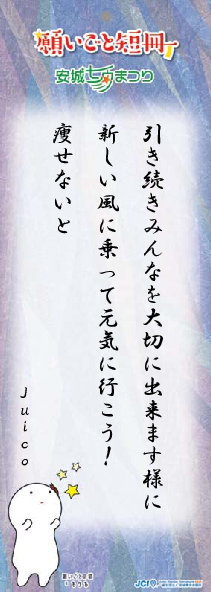 願いごと短冊
安城七夕まつり
引き続きみんなを大切に出来ます様に
新しい風に乗って元気に行こう！
痩せないと
Juico
願いごとの精
きーぼー
JCI